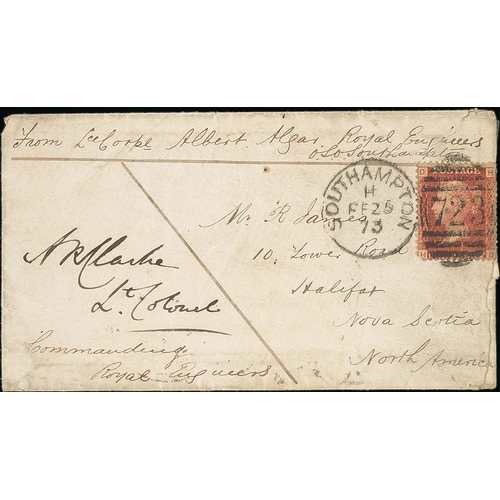 From Lce Corpl Albert Algar Royal Engineers
O.S. Southampton
SOUTHAMPTON
H
FE 26
73
723
Mr R James
10. Tower Road
Halifax
Nova Scotia
North America
A R Clarke
Lt. Colonel
Commanding
Royal Engineers